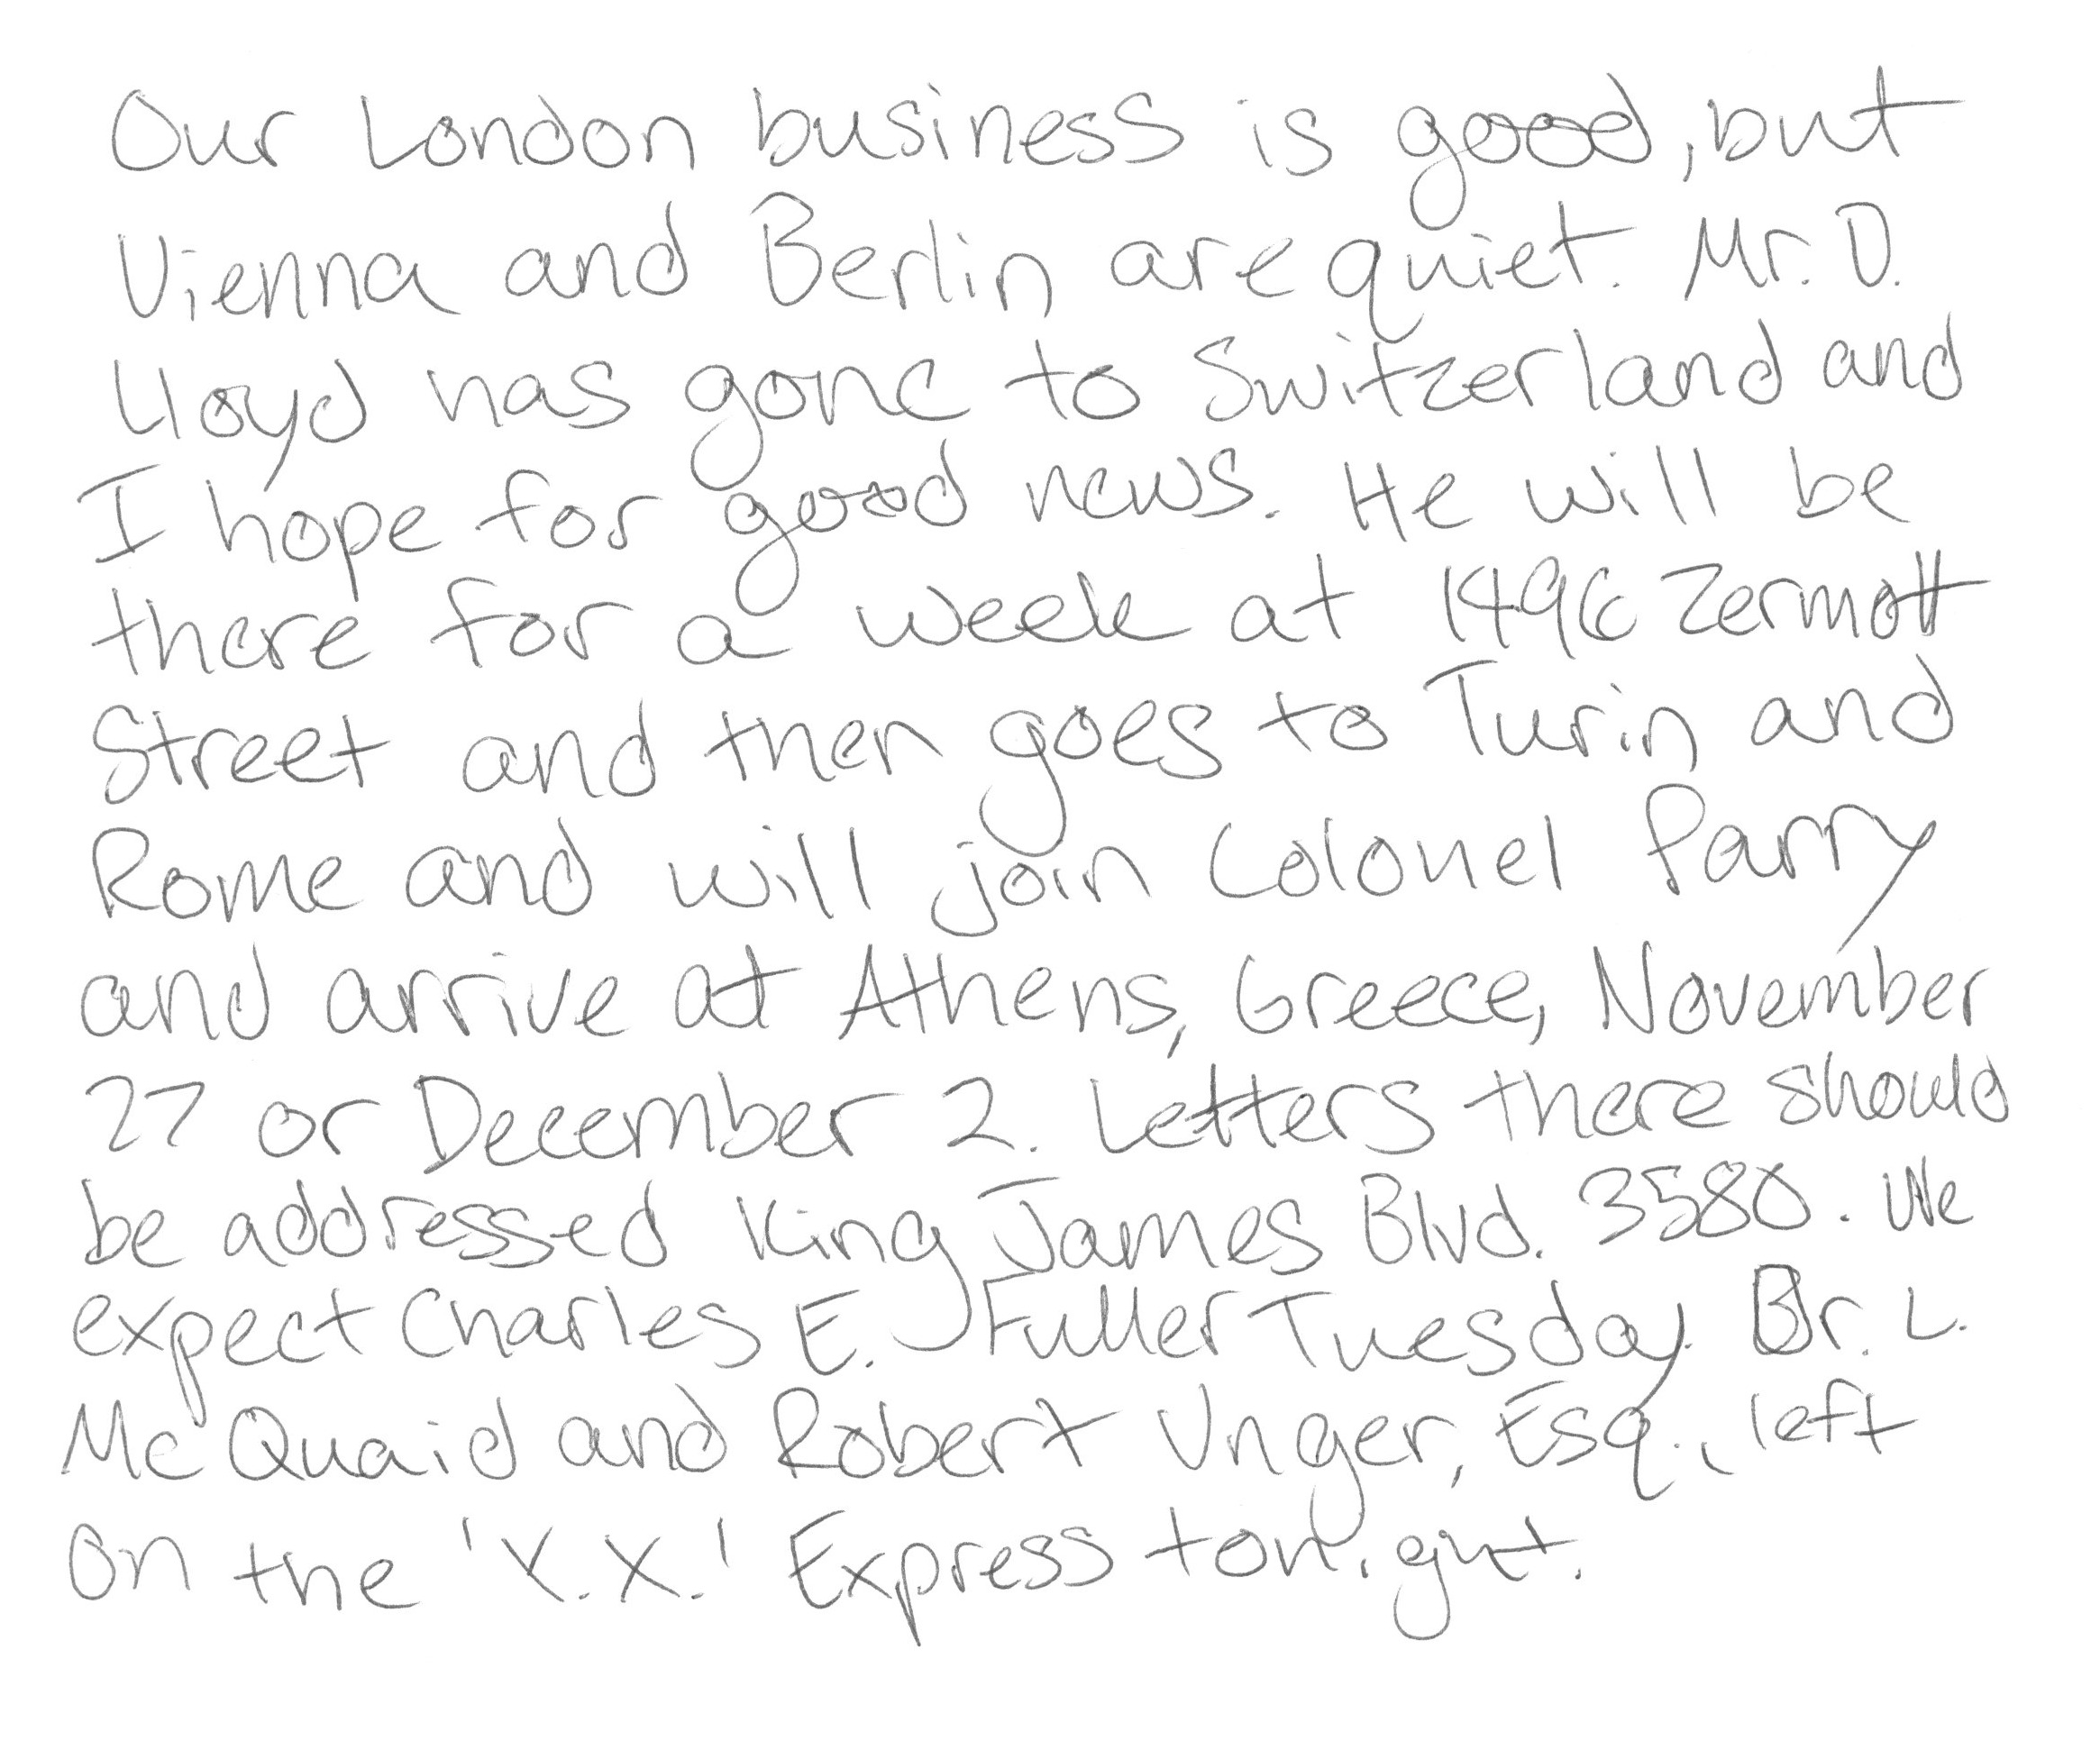 Our London business is good, but
Vienna and Berlin are quiet. Mr. D.
Lloyd has gone to Switzerland and
I hope for good news. He will be
there for a week at 1496 Zermott
Street and then goes to Turin and
Rome and will join Colonel Parry
and arrive at Athens, Greece, November
27 or December 2. Letters there should
be addressed King James Blvd. 3580. We
expect Charles E. Fuller Tuesday. Dr. L.
McQuaid and Robert Unger, Esq., left
on the 'Y.X.' Express tonight.